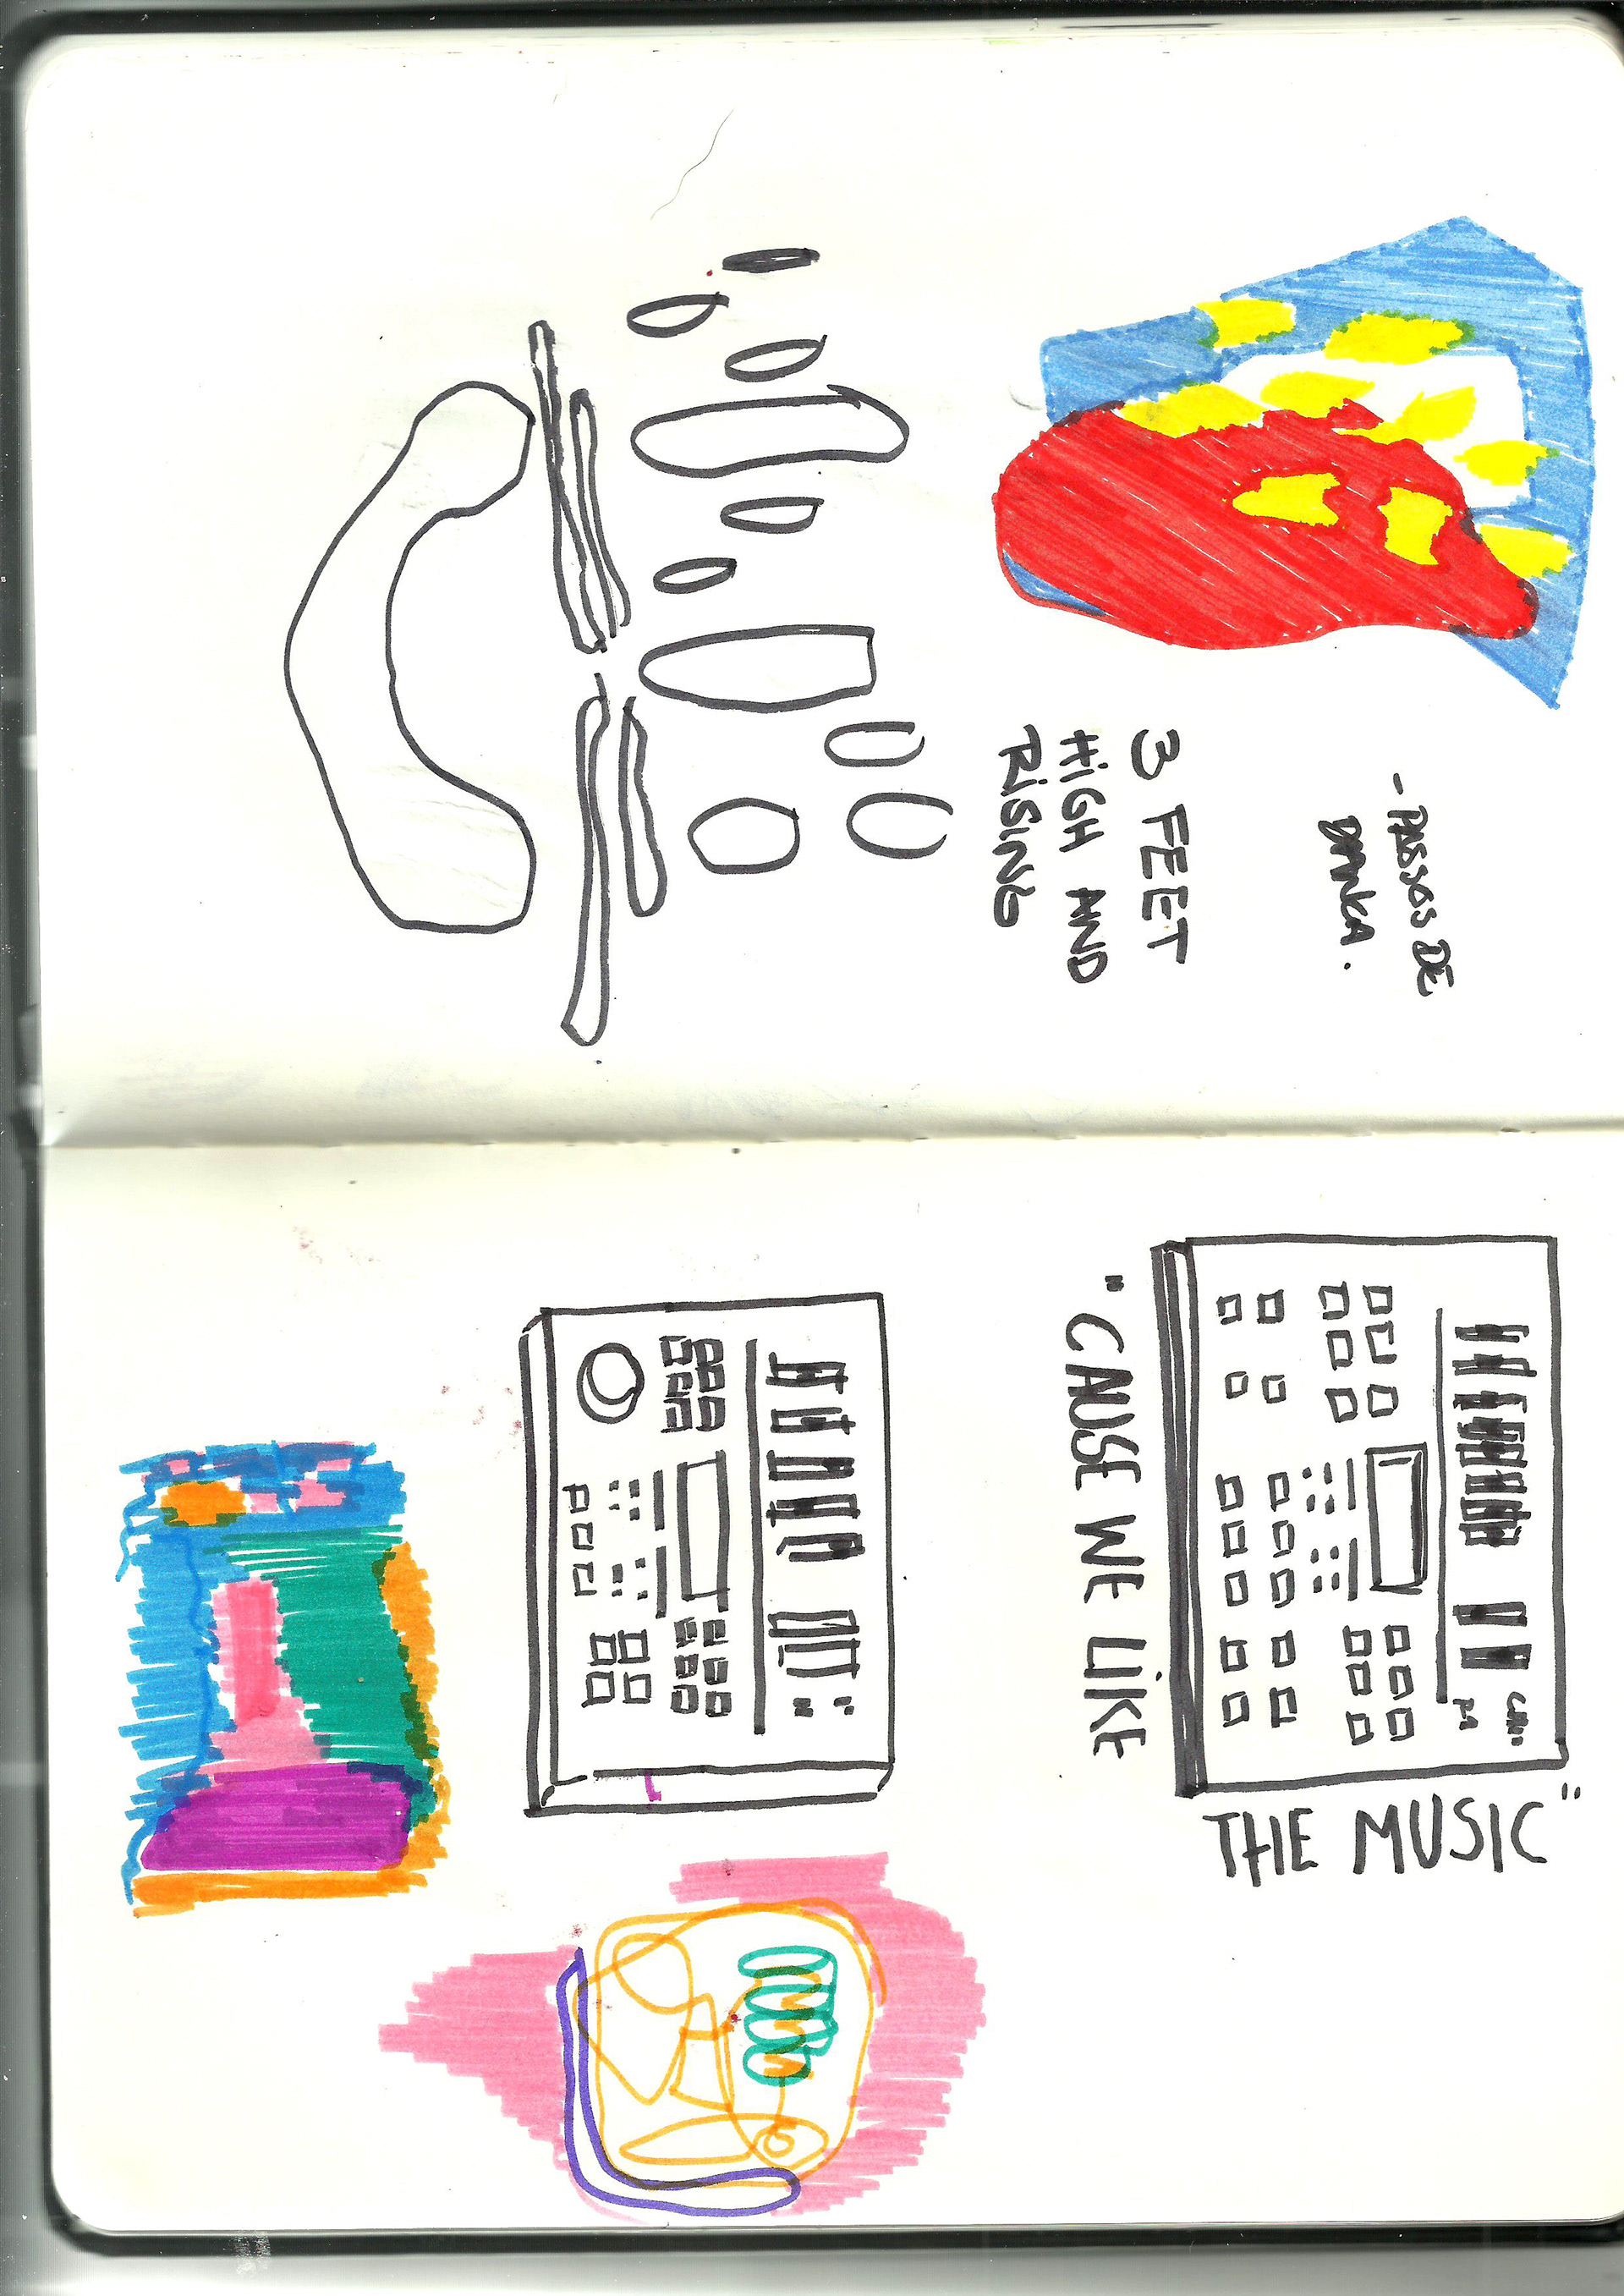 - PASSOS DE
DANÇA.
3 FEET
HIGH AND
RISING
"CAUSE WE LIKE
THE MUSIC"